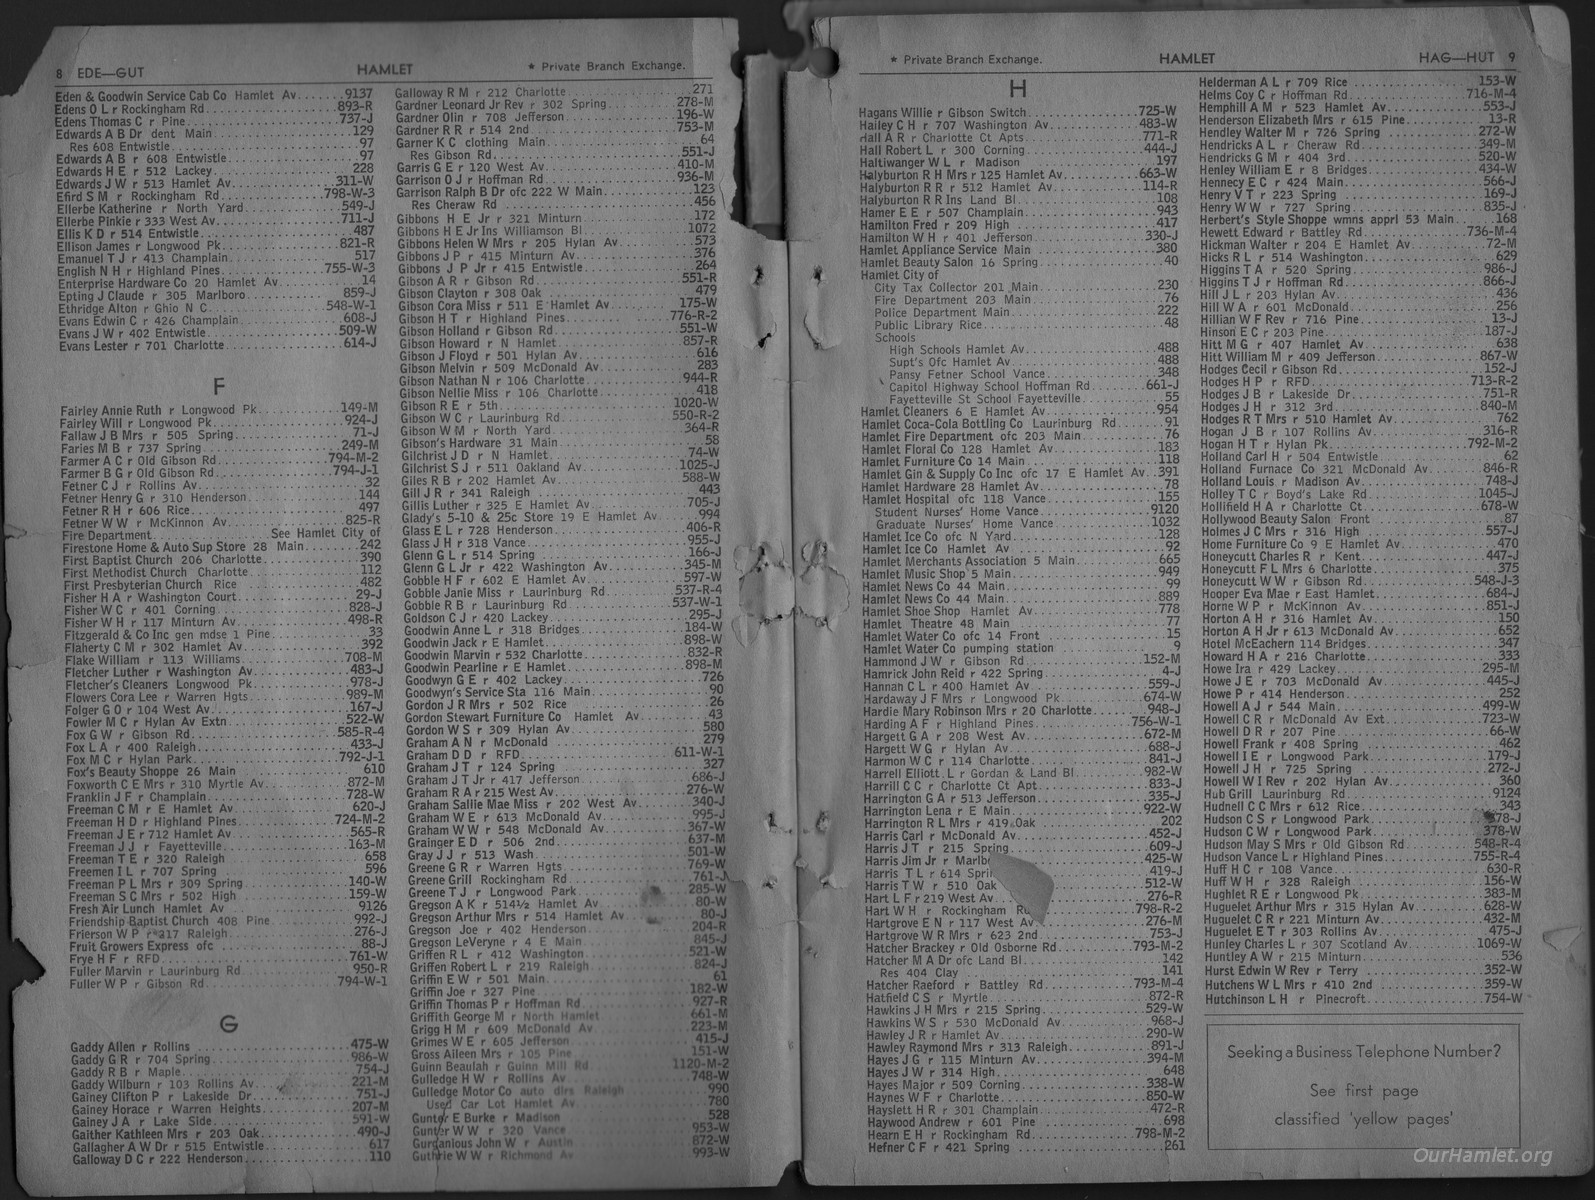 8 EDE—GUT
HAMLET
* Private Branch Exchange.
Eden & Goodwin Service Cab Co Hamlet Av 9137
Edens O L r Rockingham Rd 893-R
Edens Thomas C r Pine 737-J
Edwards A B Dr dent Main 129
Res 608 Entwistle 97
Edwards A B r 608 Entwistle 97
Edwards H E r 512 Lackey 228
Edwards J W r 513 Hamlet Av 311-W
Efird S M r Rockingham Rd 798-W-3
Ellerbe Katherine r North Yard 549-J
Ellerbe Pinkie r 333 West Av 711-J
Ellis K D r 514 Entwistle 487
Ellison James r Longwood Pk 821-R
Emanuel T J r 413 Champlain 517
English N H r Highland Pines 755-W-3
Enterprise Hardware Co 20 Hamlet Av 14
Epting J Claude r 305 Marlboro 859-J
Ethridge Alton r Ghio N C 548-W-1
Evans Edwin C r 426 Champlain 608-J
Evans J W r 402 Entwistle 509-W
Evans Lester r 701 Charlotte 614-J
F
Fairley Annie Ruth r Longwood Pk 149-M
Fairley Will r Longwood Pk 924-J
Fallaw J B Mrs r 505 Spring 71-J
Faries M B r 737 Spring 249-M
Farmer A C r Old Gibson Rd 794-M-2
Farmer B G r Old Gibson Rd 794-J-1
Fetner C J r Rollins Av 32
Fetner Henry G r 310 Henderson 144
Fetner R H r 606 Rice 497
Fetner W W r McKinnon Av 825-R
Fire Department See Hamlet City of
Firestone Home & Auto Sup Store 28 Main 242
First Baptist Church 206 Charlotte 390
First Methodist Church Charlotte 112
First Presbyterian Church Rice 482
Fisher H A r Washington Court 29-J
Fisher W C r 401 Corning 828-J
Fisher W H r 117 Minturn Av 498-R
Fitzgerald & Co Inc gen mdse 1 Pine 33
Flaherty C M r 302 Hamlet Av 392
Flake William r 113 Williams 708-M
Fletcher Luther r Washington Av 483-J
Fletcher's Cleaners Longwood Pk 978-J
Flowers Cora Lee r Warren Hgts 989-M
Folger G O r 104 West Av 167-J
Fowler M C r Hylan Av Extn 522-W
Fox G W r Gibson Rd 585-R-4
Fox L A r 400 Raleigh 433-J
Fox M C r Hylan Park 792-J-1
Fox's Beauty Shoppe 26 Main 610
Foxworth C E Mrs r 310 Myrtle Av 872-M
Franklin J F r Champlain 728-W
Freeman C M r E Hamlet Av 620-J
Freeman H D r Highland Pines 724-M-2
Freeman J E r 712 Hamlet Av 565-R
Freeman J J r Fayetteville 163-M
Freeman T E r 320 Raleigh 658
Freemen I L r 707 Spring 596
Freeman P L Mrs r 309 Spring 140-W
Freeman S C Mrs r 502 High 159-W
Fresh Air Lunch Hamlet Av 9126
Friendship Baptist Church 408 Pine 992-J
Frierson W P r 217 Raleigh 276-J
Fruit Growers Express ofc 88-J
Frye H F r RFD 761-W
Fuller Marvin r Laurinburg Rd 950-R
Fuller W P r Gibson Rd 794-W-1
G
Gaddy Allen r Rollins 475-W
Gaddy G R r 704 Spring 986-W
Gaddy R B r Maple 754-J
Gaddy Wilburn r 103 Rollins Av 221-M
Gainey Clifton P r Lakeside Dr 751-J
Gainey Horace r Warren Heights 207-M
Gainey J A r Lake Side 591-W
Gaither Kathleen Mrs r 203 Oak 490-J
Gallagher A W Dr r 515 Entwistle 617
Galloway D C r 222 Henderson 110
Galloway R M r 212 Charlotte 271
Gardner Leonard Jr Rev r 302 Spring 278-M
Gardner Olin r 708 Jefferson 196-W
Gardner R R r 514 2nd 753-M
Garner K C clothing Main 64
Res Gibson Rd 551-J
Garris G E r 120 West Av 410-M
Garrison O J r Hoffman Rd 936-M
Garrison Ralph B Dr ofc 222 W Main 123
Res Cheraw Rd 456
Gibbons H E Jr r 321 Minturn 172
Gibbons H E Jr Ins Williamson Bl 1072
Gibbons Helen W Mrs r 205 Hylan Av 573
Gibbons J P r 415 Minturn Av 376
Gibbons J P Jr r 415 Entwistle 264
Gibson A R r Gibson Rd 551-R
Gibson Clayton r 308 Oak 479
Gibson Cora Miss r 511 E Hamlet Av 175-W
Gibson H T r Highland Pines 776-R-2
Gibson Holland r Gibson Rd 551-W
Gibson Howard r N Hamlet 857-R
Gibson J Floyd r 501 Hylan Av 616
Gibson Melvin r 509 McDonald Av 283
Gibson Nathan N r 106 Charlotte 944-R
Gibson Nellie Miss r 106 Charlotte 418
Gibson R E r 5th 1020-W
Gibson W C r Laurinburg Rd 550-R-2
Gibson W M r North Yard 364-R
Gibson's Hardware 31 Main 58
Gilchrist J D r N Hamlet 74-W
Gilchrist S J r 511 Oakland Av 1025-J
Giles R B r 202 Hamlet Av 588-W
Gill J R r 341 Raleigh 443
Gillis Luther r 325 E Hamlet Av 705-J
Glady's 5-10 & 25c Store 19 E Hamlet Av 994
Glass E L r 728 Henderson 406-R
Glass J H r 318 Vance 955-J
Glenn G L r 514 Spring 166-J
Glenn G L Jr r 422 Washington Av 345-M
Gobble H F r 602 E Hamlet Av 597-W
Gobble Janie Miss r Laurinburg Rd 537-R-4
Gobble R B r Laurinburg Rd 537-W-1
Goldson C J r 420 Lackey 295-J
Goodwin Anne L r 318 Bridges 184-W
Goodwin Jack r E Hamlet 898-W
Goodwin Marvin r 532 Charlotte 832-R
Goodwin Pearline r E Hamlet 898-M
Goodwyn G E r 402 Lackey 726
Goodwyn's Service Sta 116 Main 90
Gordon J R Mrs r 502 Rice 26
Gordon Stewart Furniture Co Hamlet Av 43
Gordon W S r 309 Hylan Av 580
Graham A N r McDonald 279
Graham D D r RFD 611-W-1
Graham J T r 124 Spring 327
Graham J T Jr r 417 Jefferson 686-J
Graham R A r 215 West Av 276-W
Graham Sallie Mae Miss r 202 West Av 340-J
Graham W E r 613 McDonald Av 995-J
Graham W W r 548 McDonald Av 367-W
Grainger E D r 506 2nd 637-M
Gray J J r 513 Wash 501-W
Greene G R r Warren Hgts 769-W
Greene Grill Rockingham Rd 761-J
Greene T J r Longwood Park 285-W
Gregson A K r 514½ Hamlet Av 80-W
Gregson Arthur Mrs r 514 Hamlet Av 80-J
Gregson Joe r 402 Henderson 204-R
Gregson LeVeryne r 4 E Main 845-J
Griffen R L r 412 Washington 521-W
Griffen Robert L r 219 Raleigh 824-J
Griffin E W r 501 Main 61
Griffin Joe r 327 Pine 182-W
Griffin Thomas P r Hoffman Rd 927-R
Griffith George M r North Hamlet 661-M
Grigg H M r 609 McDonald Av 223-M
Grimes W E r 605 Jefferson 415-J
Gross Aileen Mrs r 105 Pine 151-W
Guinn Beaulah r Guinn Mill Rd 1120-M-2
Gulledge H W r Rollins Av 748-W
Gulledge Motor Co auto dlrs Raleigh 990
Used Car Lot Hamlet Av 780
Gunter E Burke r Madison 528
Gunter W W r 320 Vance 953-W
Gurganious John W r Austin 872-W
Guthrie W W r Richmond Av 993-W
* Private Branch Exchange.
HAMLET
HAG—HUT 9
H
Hagans Willie r Gibson Switch 725-W
Hailey C H r 707 Washington Av 483-W
Hall A R r Charlotte Ct Apts 771-R
Hall Robert L r 300 Corning 444-J
Haltiwanger W L r Madison 197
Halyburton R H Mrs r 125 Hamlet Av 663-W
Halyburton R R r 512 Hamlet Av 114-R
Halyburton R R Ins Land Bl 108
Hamer E E r 507 Champlain 943
Hamilton Fred r 209 High 417
Hamilton W H r 401 Jefferson 330-J
Hamlet Appliance Service Main 380
Hamlet Beauty Salon 16 Spring 40
Hamlet City of
City Tax Collector 201 Main 230
Fire Department 203 Main 76
Police Department Main 222
Public Library Rice 48
Schools
High Schools Hamlet Av 488
Supt's Ofc Hamlet Av 488
Pansy Fetner School Vance 348
Capitol Highway School Hoffman Rd 661-J
Fayetteville St School Fayetteville 55
Hamlet Cleaners 6 E Hamlet Av 954
Hamlet Coca-Cola Bottling Co Laurinburg Rd 91
Hamlet Fire Department ofc 203 Main 76
Hamlet Floral Co 128 Hamlet Av 183
Hamlet Furniture Co 14 Main 118
Hamlet Gin & Supply Co Inc ofc 17 E Hamlet Av 391
Hamlet Hardware 28 Hamlet Av 78
Hamlet Hospital ofc 118 Vance 155
Student Nurses' Home Vance 9120
Graduate Nurses' Home Vance 1032
Hamlet Ice Co ofc N Yard 128
Hamlet Ice Co Hamlet Av 92
Hamlet Merchants Association 5 Main 665
Hamlet Music Shop 5 Main 949
Hamlet News Co 44 Main 99
Hamlet News Co 44 Main 889
Hamlet Shoe Shop Hamlet Av 778
Hamlet Theatre 48 Main 77
Hamlet Water Co ofc 14 Front 15
Hamlet Water Co pumping station 9
Hammond J W r Gibson Rd 152-M
Hamrick John Reid r 422 Spring 4-J
Hannan C L r 400 Hamlet Av 559-J
Hardaway J F Mrs r Longwood Pk 674-W
Hardie Mary Robinson Mrs r 20 Charlotte 948-J
Harding A F r Highland Pines 756-W-1
Hargett G A r 208 West Av 672-M
Hargett W G r Hylan Av 688-J
Harmon W C r 114 Charlotte 841-J
Harrell Elliott L r Gordan & Land Bl 982-W
Harrill C C r Charlotte Ct Apt 833-J
Harrington G A r 513 Jefferson 335-J
Harrington Lena r E Main 922-W
Harrington R L Mrs r 419 Oak 202
Harris Carl r McDonald Av 452-J
Harris J T r 215 Spring 609-J
Harris Jim Jr r Marlb 425-W
Harris T L r 614 Spri 419-J
Harris T W r 510 Oak 512-W
Hart L F r 219 West Av 276-R
Hart W H r Rockingham R 798-R-2
Hartgrove E N r 117 West Av 276-M
Hartgrove W R Mrs r 623 2nd 753-J
Hatcher Brackey r Old Osborne Rd 793-M-2
Hatcher M A Dr ofc Land Bl 142
Res 404 Clay 141
Hatcher Raeford r Battley Rd 793-M-4
Hatfield C S r Myrtle 872-R
Hawkins J H Mrs r 215 Spring 529-W
Hawkins W S r 530 McDonald Av 968-J
Hawley J R r Hamlet Av 290-W
Hawley Raymond Mrs r 313 Raleigh 891-J
Hayes J G r 115 Minturn Av 394-M
Hayes J W r 314 High 648
Hayes Major r 509 Corning 338-W
Haynes W F r Charlotte 850-W
Hayslett H R r 301 Champlain 472-R
Haywood Andrew r 601 Pine 698
Hearn E H r Rockingham Rd 798-M-2
Hefner C F r 421 Spring 261
Helderman A L r 709 Rice 153-W
Helms Coy C r Hoffman Rd 716-M-4
Hemphill A M r 523 Hamlet Av 553-J
Henderson Elizabeth Mrs r 615 Pine 13-R
Hendley Walter M r 726 Spring 272-W
Hendricks A L r Cheraw Rd 349-M
Hendricks G M r 404 3rd 520-W
Henley William E r 8 Bridges 434-W
Hennecy E C r 424 Main 566-J
Henry V T r 223 Spring 169-J
Henry W W r 727 Spring 835-J
Herbert's Style Shoppe wmns apprl 53 Main 168
Hewett Edward r Battley Rd 736-M-4
Hickman Walter r 204 E Hamlet Av 72-M
Hicks R L r 514 Washington 629
Higgins T A r 520 Spring 986-J
Higgins T J r Hoffman Rd 866-J
Hill J L r 203 Hylan Av 436
Hill W A r 601 McDonald 256
Hillian W F Rev r 716 Pine 13-J
Hinson E C r 203 Pine 187-J
Hitt M G r 407 Hamlet Av 638
Hitt William M r 409 Jefferson 867-W
Hodges Cecil r Gibson Rd 152-J
Hodges H P r RFD 713-R-2
Hodges J B r Lakeside Dr 751-R
Hodges J H r 312 3rd 840-M
Hodges R T Mrs r 510 Hamlet Av 762
Hogan J B r 107 Rollins Av 316-R
Hogan H T r Hylan Pk 792-M-2
Holland Carl H r 504 Entwistle 62
Holland Furnace Co 321 McDonald Av 846-R
Holland Louis r Madison Av 748-J
Holley T C r Boyd's Lake Rd 1045-J
Hollifield H A r Charlotte Ct 678-W
Hollywood Beauty Salon Front 87
Holmes J C Mrs r 316 High 557-J
Home Furniture Co 9 E Hamlet Av 470
Honeycutt Charles R r Kent 447-J
Honeycutt F L Mrs 6 Charlotte 375
Honeycutt W W r Gibson Rd 548-J-3
Hooper Eva Mae r East Hamlet 684-J
Horne W P r McKinnon Av 851-J
Horton A H r 316 Hamlet Av 150
Horton A H Jr r 613 McDonald Av 652
Hotel McEachern 114 Bridges 347
Howard H A r 216 Charlotte 333
Howe Ira r 429 Lackey 295-M
Howe J E r 703 McDonald Av 445-J
Howe P r 414 Henderson 252
Howell A J r 544 Main 499-W
Howell C R r McDonald Av Ext 723-W
Howell D R r 207 Pine 66-W
Howell Frank r 408 Spring 462
Howell I E r Longwood Park 179-J
Howell J H r 725 Spring 272-J
Howell W I Rev r 202 Hylan Av 360
Hub Grill Laurinburg Rd 9124
Hudnell C C Mrs r 612 Rice 343
Hudson C S r Longwood Park 78-J
Hudson C W r Longwood Park 378-W
Hudson May S Mrs r Old Gibson Rd 548-R-4
Hudson Vance L r Highland Pines 755-R-4
Huff H C r 108 Vance 630-R
Huff W H r 328 Raleigh 156-W
Hughlet R E r Longwood Pk 383-M
Huguelet Arthur Mrs r 315 Hylan Av 628-W
Huguelet C R r 221 Minturn Av 432-M
Huguelet E T r 303 Rollins Av 475-J
Hunley Charles L r 307 Scotland Av 1069-W
Huntley A W r 215 Minturn 536
Hurst Edwin W Rev r Terry 352-W
Hutchens W L Mrs r 410 2nd 359-W
Hutchinson L H r Pinecroft 754-W
Seeking a Business Telephone Number?
See first page
classified 'yellow pages'
OurHamlet.org